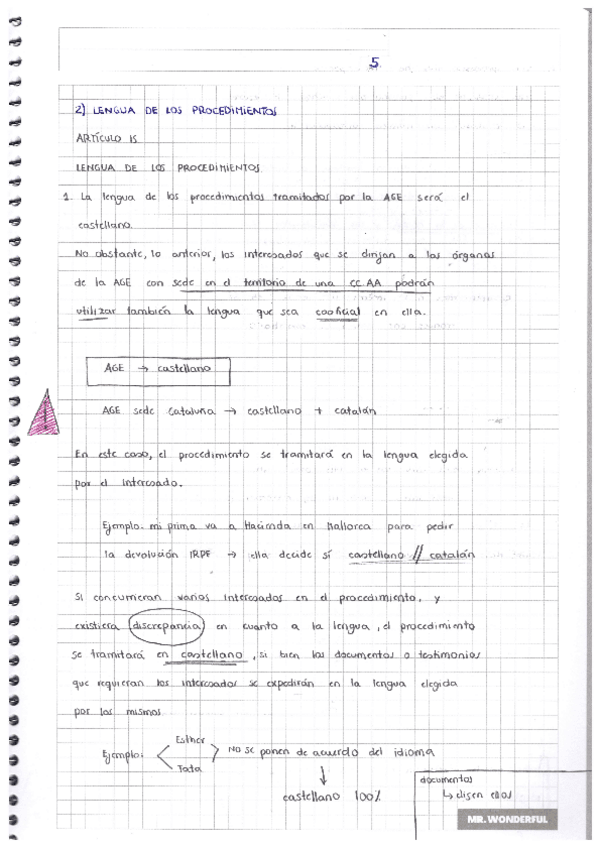 5
2) LENGUA DE LOS PROCEDIMIENTOS
ARTÍCULO 15
LENGUA DE LOS PROCEDIMIENTOS
1. La lengua de los procedimientos tramitados por la AGE será el
castellano.
No obstante, lo anterior, los interesados que se dirijan a los órganos
de la AGE con sede en el territorio de una CC.AA podrán
utilizar también la lengua que sea cooficial en ella.
AGE → castellano
AGE sede Cataluña → castellano + catalán
En este caso, el procedimiento se tramitará en la lengua elegida
por el interesado.
Ejemplo: mi prima va a Hacienda en Mallorca para pedir
la devolución IRPF → ella decide sí castellano // catalán
Si concurrieran varios interesados en el procedimiento, y
existiera discrepancia en cuanto a la lengua, el procedimiento
se tramitará en castellano, si bien los documentos o testimonios
que requieran los interesados se expedirán en la lengua elegida
por los mismos
Ejemplo: Esther
Tata
No se ponen de acuerdo del idioma
↓
castellano 100%
documentos
↳ eligen ellos
MR. WONDERFUL